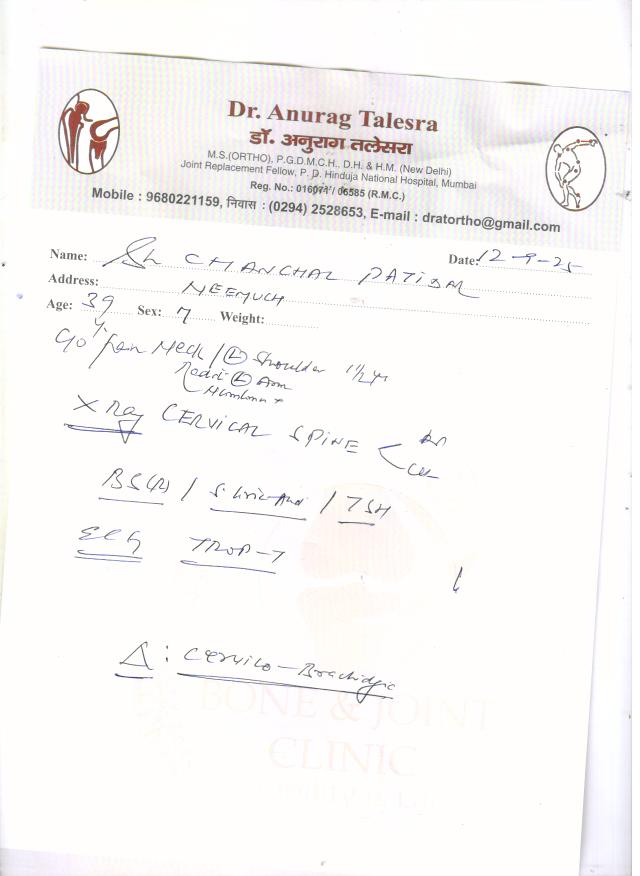 Dr. Anurag Talesra
डॉ. अनुराग तलेसरा
M.S.(ORTHO), P.G.D.M.C.H., D.H. & H.M. (New Delhi)
Joint Replacement Fellow, P. D. Hinduja National Hospital, Mumbai
Reg. No.: 016074 / 06585 (R.M.C.)
Mobile : 9680221159, निवास : (0294) 2528653, E-mail : dratortho@gmail.com
Name: Sh CHANCHAL PATIDAR Date: 12-9-25
Address: NEEMUCH
Age: 39 y. Sex: M Weight:
C/o pain Neck / (L) Shoulder 1 1/2 yr
Radi (L) Arm
Numbness +
X Ray CERVICAL SPINE < AP
BS(R) / S. Uric Acid / TSH
ECG TROP-T
Δ : Cervico-Brachialgia
BONE & JOINT
CLINIC